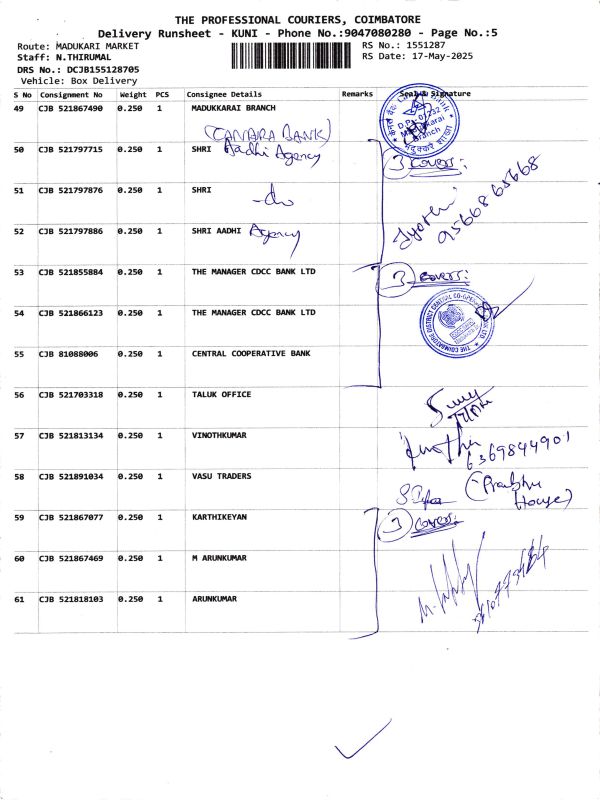 THE PROFESSIONAL COURIERS, COIMBATORE
Delivery Runsheet - KUNI - Phone No.:9047080280 - Page No.:5
Route: MADUKARI MARKET
Staff: N.THIRUMAL
DRS No.: DCJB155128705
Vehicle: Box Delivery
RS No.: 1551287
RS Date: 17-May-2025
S No Consignment No Weight PCS Consignee Details Remarks Seal & Signature
49 CJB 521867490 0.250 1 MADUKKARAI BRANCH
(CANARA BANK)
50 CJB 521797715 0.250 1 SHRI Aadhi Agency
3 covers:
51 CJB 521797876 0.250 1 SHRI -do
Jyothi
9566865668
52 CJB 521797886 0.250 1 SHRI AADHI Agency
53 CJB 521855884 0.250 1 THE MANAGER CDCC BANK LTD
3 covers:
54 CJB 521866123 0.250 1 THE MANAGER CDCC BANK LTD
55 CJB 81088006 0.250 1 CENTRAL COOPERATIVE BANK
56 CJB 521703318 0.250 1 TALUK OFFICE
57 CJB 521813134 0.250 1 VINOTHKUMAR
6369844901
58 CJB 521891034 0.250 1 VASU TRADERS
(Prabhu
House)
59 CJB 521867077 0.250 1 KARTHIKEYAN
3 covers:
60 CJB 521867469 0.250 1 M ARUNKUMAR
61 CJB 521818103 0.250 1 ARUNKUMAR